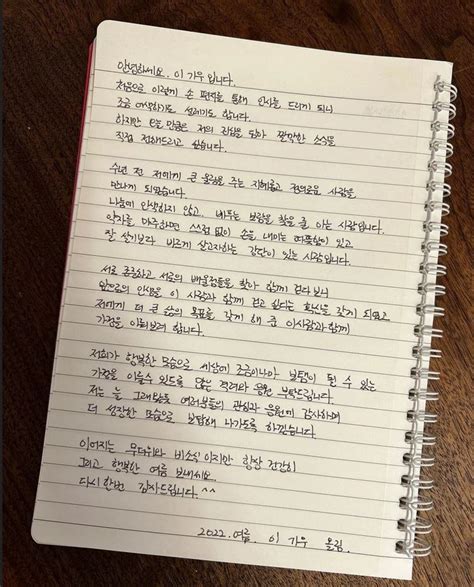 안녕하세요. 이 가우 입니다.
처음으로 이렇게 손 편지를 통해 인사를 드리게 되니
조금 어색하기도 설레기도 합니다.
하지만 오늘 만큼은 저의 진심을 담아 깜짝한 소식을
직접 전해드리고 싶습니다.
수년 전 저에게 큰 울림을 주는 지혜롭고 정의로운 사람을
만나게 되었습니다.
나눔에 인색하지 않고, 베푸는 보람을 찾을 줄 아는 사람입니다.
약자를 마주하면 스스럼 없이 손을 내미는 따뜻함이 있고
잘 살기보다 바르게 살고자하는 강단이 있는 사람입니다.
서로 존중하고 서로의 배울점들을 찾아 함께 걷다 보니
앞으로의 인생을 이 사람과 함께 걷고 싶다는 확신을 갖게 되었고
저에게 더 큰 삶의 목표를 갖게 해 준 이사람과 함께
가정을 이뤄보려 합니다.
저희가 행복한 모습으로 세상에 조금이나마 보탬이 될 수 있는
가정을 이룰수 있도록 많은 격려와 응원 부탁드립니다.
저는 늘 그래왔듯 여러분들의 관심과 응원에 감사하며
더 성장한 모습으로 보답해 나가도록 하겠습니다.
이어지는 무더위와 비소식 이지만 항상 건강히
그리고 행복한 여름 보내세요.
다시한번 감사드립니다. ^^
2022. 여름. 이 가우 올림.